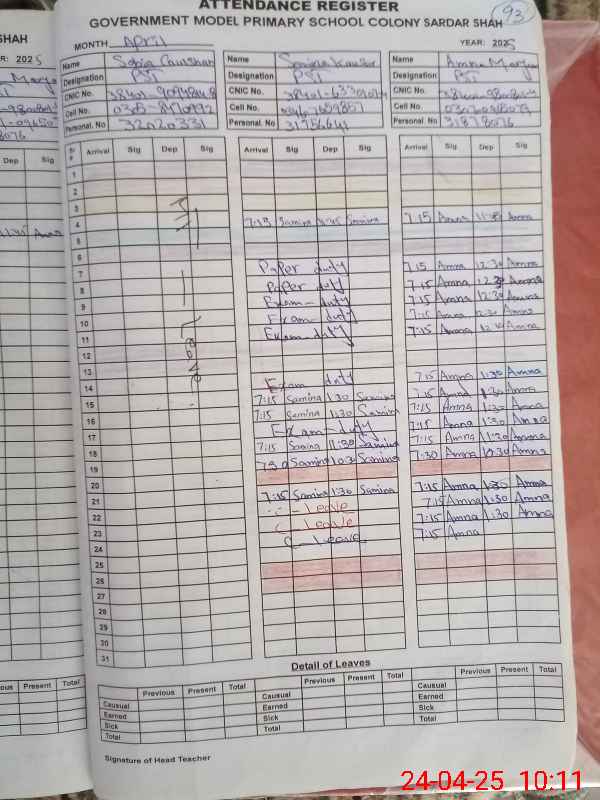 ATTENDANCE REGISTER
93
GOVERNMENT MODEL PRIMARY SCHOOL COLONY SARDAR SHAH
MONTH April YEAR: 2025
Name Name Samina Name Amna
Designation PST Designation PST Designation PST
CNIC No. CNIC No. CNIC No.
Cell No. Cell No. Cell No.
Personal. No 32020331 Personal. No Personal. No 31878076
Arrival Sig Dep Sig Arrival Sig Dep Sig Arrival Sig Dep Sig
1
2
3
4 7:15 Samina 11:45 Samina 7:15 Amna Amna
5
6
7 Paper duty 7:15 Amna 12:30 Amna
8 Paper duty 7:15 Amna 12:30 Amna
9 Exam-duty 7:15 Amna 12:30 Amna
10 Exam-duty 7:15 Amna 12:30 Amna
11 Exam-duty 7:15 Amna Amna
12
13
14 Exam duty 7:15 Amna 1:30 Amna
15 7:15 Samina 1:30 Samina 7:15 Amna 1:30 Amna
16 7:15 Samina 1:30 Samina 7:15 Amna 1:30 Amna
17 Exam-duty 7:15 Amna 1:30 Amna
18 7:15 Samina 11:30 Samina 7:15 Amna 11:30 Amna
19 7:30 Samina 10:30 Samina 7:30 Amna 10:30 Amna
20
21 7:15 Samina 1:30 Samina 7:15 Amna 1:30 Amna
22 - Leave 7:15 Amna 1:30 Amna
23 Leave 7:15 Amna 1:30 Amna
24 - Leave 7:15 Amna
25
26
27
28
29
30
31
Leave
Detail of Leaves
Previous Present Total Previous Present Total Previous Present Total
Causual Causual Causual
Earned Earned Earned
Sick Sick Sick
Total Total Total
Signature of Head Teacher
SHAH
R: 2025
Dep Sig
11:45 Amna
Present Total
24-04-25 10:11